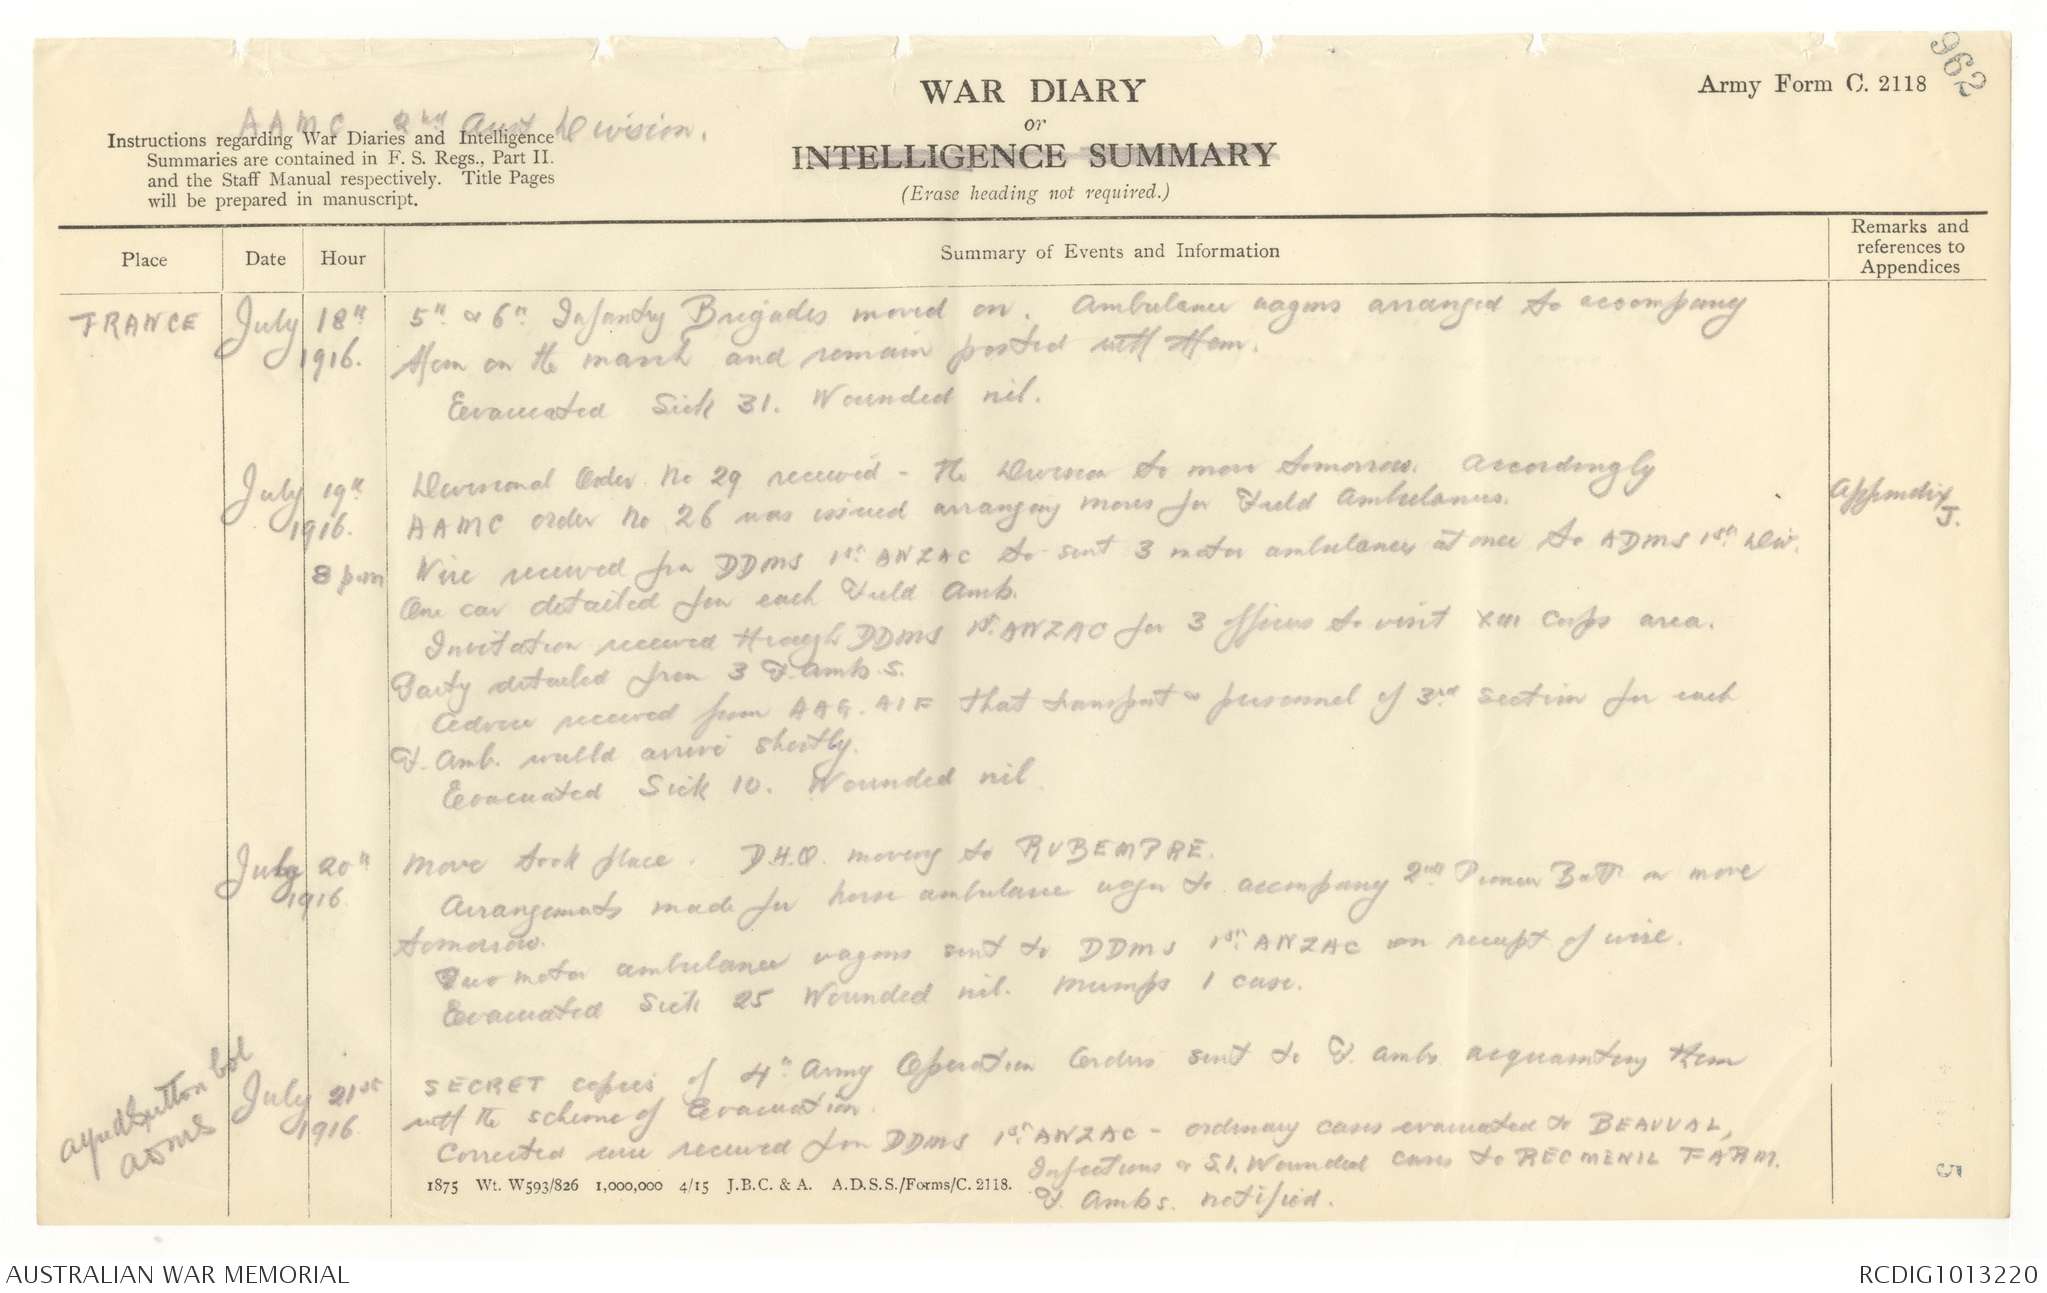 962
WAR DIARY
or
INTELLIGENCE SUMMARY
(Erase heading not required.)
Army Form C. 2118
AAMC 2nd Aust Division.
Instructions regarding War Diaries and Intelligence
Summaries are contained in F. S. Regs., Part II.
and the Staff Manual respectively. Title Pages
will be prepared in manuscript.
Place
Date
Hour
Summary of Events and Information
Remarks and
references to
Appendices
FRANCE July 18th 5th & 6th Infantry Brigades moved on. Ambulance wagons arranged to accompany
1916. them on the march and remain posted with them.
Evacuated Sick 31. Wounded nil.
July 19th Divisional Order No 29 received - the Division to move tomorrow. Accordingly
1916. AAMC order No 26 was issued arranging moves for Field Ambulances. Appendix J.
8 pm Wire received fro DDMS 1st ANZAC to sent 3 motor ambulances at once to ADMS 1st Div.
One car detailed from each Field Amb.
Invitation received through DDMS 1st ANZAC for 3 officers to visit XIII Corps area.
Party detailed from 3 F. Ambs.
Advice received from AAG. AIF that transport & personnel of 3rd section for each
F. Amb. would arrive shortly.
Evacuated Sick 10. Wounded nil
July 20th Move took place. D.H.Q. moving to RUBEMPRE.
1916 Arrangements made for horse ambulance wagon to accompany 2nd Pioneer Battn on move
tomorrow.
Two motor ambulance wagons sent to DDMS 1st ANZAC on receipt of wire.
Evacuated Sick 25 Wounded nil. Mumps 1 case.
July 21st SECRET copies of 4th Army Operation Orders sent to F. Ambs acquainting them
1916 with the scheme of Evacuation.
Corrected wire received from DDMS 1st ANZAC - ordinary cases evacuated to BEAUVAL,
Infectious & S.I. Wounded cases to RECMENIL FARM.
F. Ambs. notified.
Alfred Sutton Col
ADMS
1875 Wt. W593/826 1,000,000 4/15 J.B.C. & A. A.D.S.S./Forms/C. 2118.
5
AUSTRALIAN WAR MEMORIAL
RCDIG1013220